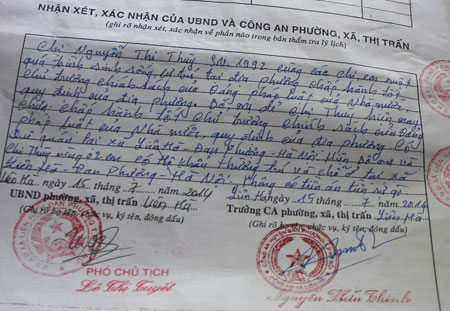 NHẬN XÉT, XÁC NHẬN CỦA UBND VÀ CÔNG AN PHƯỜNG, XÃ, THỊ TRẤN
(ghi rõ nhận xét, xác nhận về phần nào trong bản thẩm tra lý lịch)
Chị Nguyễn Thị Thuy SN. 1992 cùng các chị em ruột
quá trình sinh sống cư trú tại địa phương chấp hành tốt
chủ trương chính sách của Đảng pháp luật của Nhà nước
quy định của địa phương. Bố mẹ đẻ chị Thuy hiện nay
chưa chấp hành tốt chủ trương chính sách của Đảng
pháp luật của Nhà nước, quy định của địa phương Cô
trú quán tại xã Liên Hà Đan Phượng Hà Nội Hiện bố mẹ và
chị Thuy cùng các em có hộ khẩu thường trú và chỗ tại xã
Liên Hà Đan Phượng - Hà Nội. Không có tiền án tiền sự gì
Liên Hà, ngày 15 tháng 7 năm 2014
Liên Hà, ngày 15 tháng 7 năm 2014
UBND phường, xã, thị trấn Liên Hà
Trưởng CA phường, xã, thị trấn Liên Hà
(Ghi rõ họ tên, chức vụ, ký tên, đóng dấu)
(Ghi rõ họ tên, chức vụ, ký tên, đóng dấu)
PHÓ CHỦ TỊCH
Lê Thị Tuyết
Nguyễn Thìn Thinh